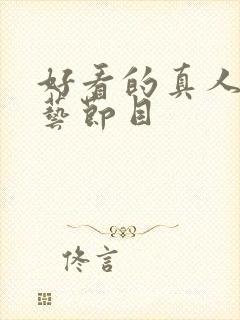 好看的真人
藝節目
佟言